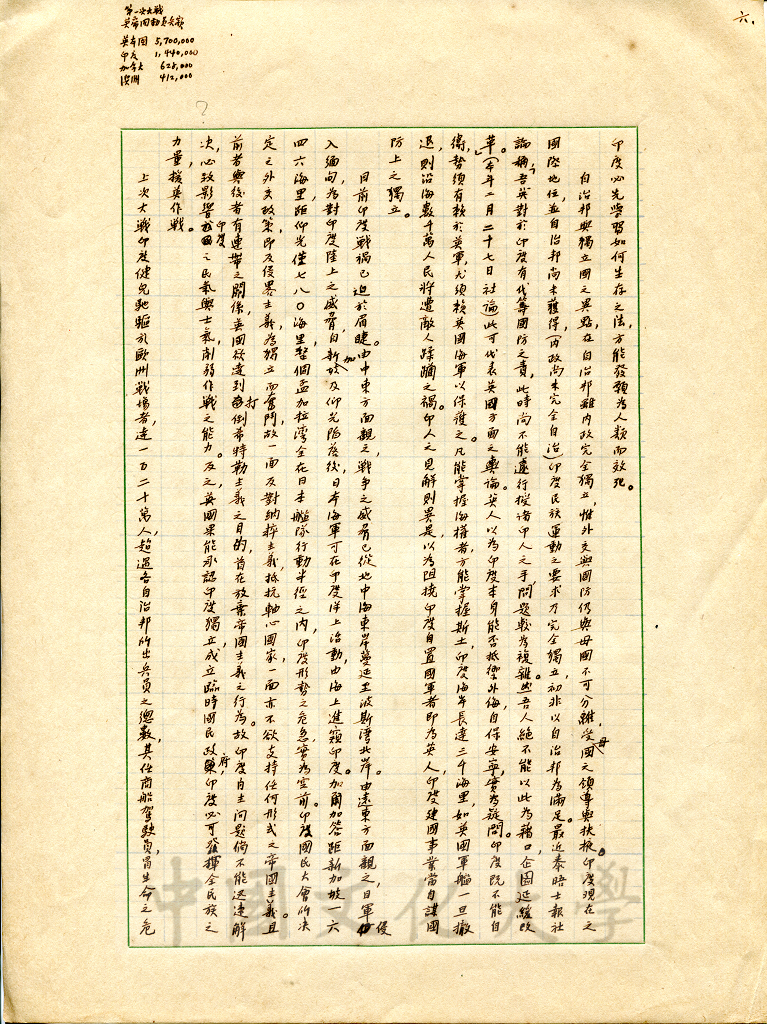 六.
第一次大戰
英帝國動員兵額
英本國 5,700,000
印度 1,440,000
加拿大 628,000
澳洲 412,000
?
印度必先學習如何生存之法,方能發願為人類而效死。
自治邦與獨立國之異點,在自治邦雖內政完全獨立,惟外交與國防仍與母國不可分離,受母國之領導與扶掖。印度現在之
國際地位,並自治邦尚未獲得(內政尚未完全自治)印度民族運動之要求乃完全獨立,初非以自治邦為滿足。最近泰晤士報社
論稱,吾英對於印度有代籌國防之責,此時尚不能遽行授諸印人之手,問題較為複雜,然吾人絕不能以此為藉口,企圖延緩改
革。」(本年二月二十七日社論)此可代表英國方面之輿論。英人以為印度本身能否抵禦外侮,自保安寧,實為疑問。印度既不能自
衛,勢須有賴於英軍,尤須賴英國海軍以保護之。凡能掌握海權者,方能掌握斯土,印度海岸長達三千海里,如英國軍艦一旦撤
退,則沿海數千萬人民將遭敵人蹂躪之禍。印人之見解則異是,以為阻撓印度自置國軍者即為英人,印度建國事業當自謀國
防上之獨立。
目前印度戰禍已迫於眉睫。由中東方面觀之,戰爭之威脅已從地中海東岸蔓延至波斯灣北岸。由遠東方面觀之,日軍侵
入緬甸,為對印度陸上之威脅,自新加坡及仰光陷落後,日本海軍可在印度洋上活動,由海上進窺印度。加爾加答距新加坡一六
四六海里,距仰光僅七八〇海里,整個孟加拉灣全在日本艦隊行動半徑之內,印度形勢之危急,實為空前。印度國民大會所決
定之外交政策,即反侵略主義,為獨立而奮鬥,故一面反對納粹主義,抵抗軸心國家,一面亦不欲支持任何形式之帝國主義。且
前者與後者有連帶之關係,英國欲達到打倒希特勒主義之目的,首在放棄帝國主義之行為。故印度自主問題倘不能迅速解
決,必致影響印度之民氣與士氣,削弱作戰之能力。反之,英國果能承認印度獨立,成立臨時國民政府,印度必可發揮全民族之
力量,援英作戰。
上次大戰,印度健兒馳驅於歐洲戰場者,達一百二十萬人,超過各自治邦所出兵員之總數,其任商船駕駛員,冒生命之危
中國文化大學